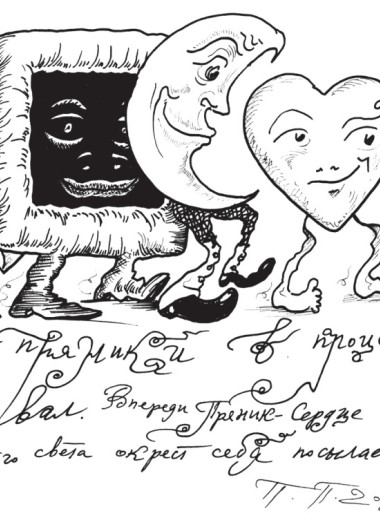 прямикой в проце
вал. Впереди Пряник-Сердце
го света окрест себя посылае
П.П.2